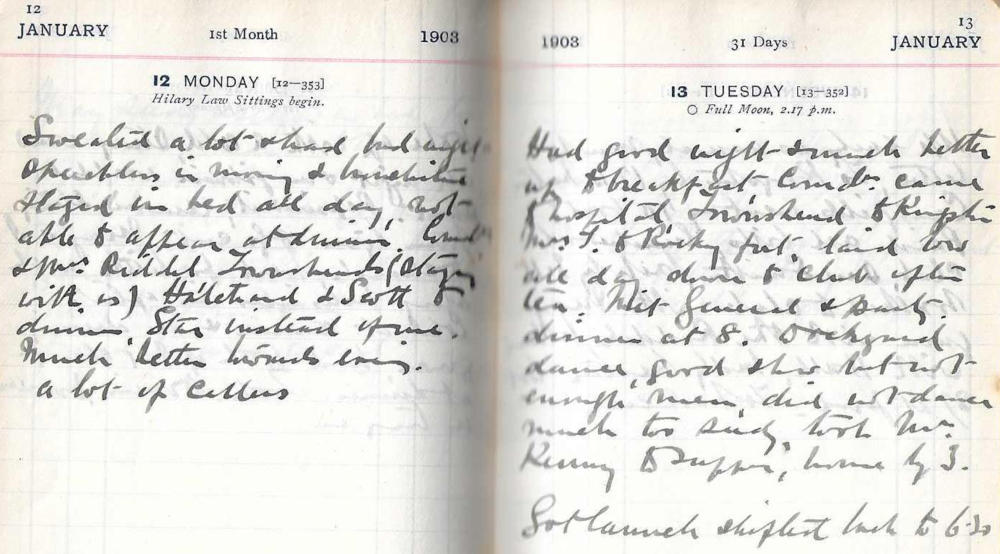 12
JANUARY
1st Month
1903
12 MONDAY [12—353]
Hilary Law Sittings begin.
Sweated a lot & had bad night
in morning &
stayed in bed all day, not
able to appear at dinner.
& Mrs Riddel Townshends (staying
with us) & Scott to
dinner. Star instead of me.
Much better towards
a lot of callers
13
JANUARY
31 Days
1903
13 TUESDAY [13—352]
Full Moon, 2.17 p.m.
Had good night & much better
up to breakfast Comdt. came
hospital, Townshend &
Mrs T. to Rocky fort, laid low
all day down to club after
tea. Met General & party.
dinner at 8. Dockyard
dance, good show but not
enough men, did not dance
much too seedy, took Mrs.
to supper, home by 3.
Got launch shifted back to 6.30